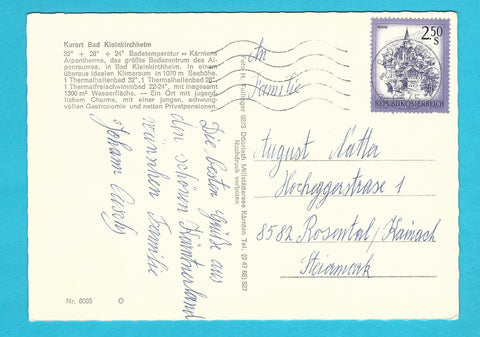 Kurort Bad Kleinkirchheim
32° + 28° + 24° Badetemperatur = Kärntens
Alpentherme, das größte Badezentrum des Al-
penraumes, in Bad Kleinkirchheim. In einem
überaus idealen Klimaraum in 1070 m Seehöhe.
1 Thermalhallenbad 32°, 1 Thermalhallenbad 28°,
1 Thermalfreischwimmbad 22-24°, mit insgesamt
1300 m² Wasserfläche. — Ein Ort mit jugend-
lichem Charme, mit einer jungen, schwung-
vollen Gastronomie und netten Privatpensionen.
Die besten Grüße aus
dem schönen Kärntnerland
wünschen Familie
Johann
Nr. 6085
9873 Döbriach Millstättersee Kärnten Tel. (0 42 46) 627
Nachdruck verboten
2.50
S
REPUBLIK ÖSTERREICH
An
Familie
August
Hocheggerstrasse 1
8582 Rosental/Kainach
Steiermark